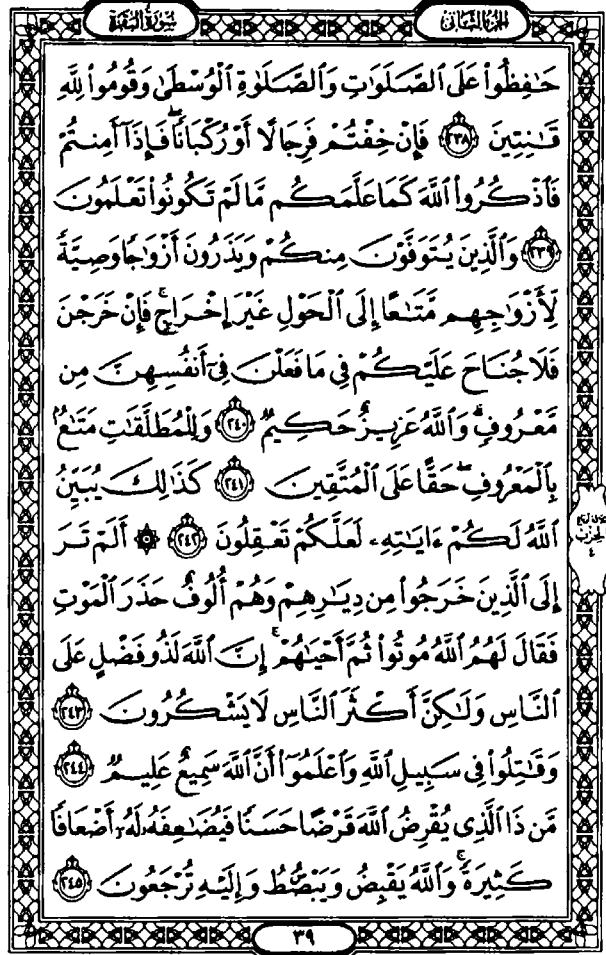 سُورَةُ البَقَرَةِ
الجُزْءُ الثَّانِي
حَٰفِظُوا۟ عَلَى ٱلصَّلَوَٰتِ وَٱلصَّلَوٰةِ ٱلْوُسْطَىٰ وَقُومُوا۟ لِلَّهِ
قَٰنِتِينَ ٢٣٨ فَإِنْ خِفْتُمْ فَرِجَالًا أَوْ رُكْبَانًا ۖ فَإِذَآ أَمِنتُمْ
فَٱذْكُرُوا۟ ٱللَّهَ كَمَا عَلَّمَكُم مَّا لَمْ تَكُونُوا۟ تَعْلَمُونَ
٢٣٩ وَٱلَّذِينَ يُتَوَفَّوْنَ مِنكُمْ وَيَذَرُونَ أَزْوَٰجًا وَصِيَّةً
لِّأَزْوَٰجِهِم مَّتَٰعًا إِلَى ٱلْحَوْلِ غَيْرَ إِخْرَاجٍ ۚ فَإِنْ خَرَجْنَ
فَلَا جُنَاحَ عَلَيْكُمْ فِى مَا فَعَلْنَ فِىٓ أَنفُسِهِنَّ مِن
مَّعْرُوفٍ ۗ وَٱللَّهُ عَزِيزٌ حَكِيمٌ ٢٤٠ وَلِلْمُطَلَّقَٰتِ مَتَٰعٌۢ
بِٱلْمَعْرُوفِ ۖ حَقًّا عَلَى ٱلْمُتَّقِينَ ٢٤١ كَذَٰلِكَ يُبَيِّنُ
ٱللَّهُ لَكُمْ ءَايَٰتِهِۦ لَعَلَّكُمْ تَعْقِلُونَ ٢٤٢ ۞ أَلَمْ تَرَ
إِلَى ٱلَّذِينَ خَرَجُوا۟ مِن دِيَٰرِهِمْ وَهُمْ أُلُوفٌ حَذَرَ ٱلْمَوْتِ
فَقَالَ لَهُمُ ٱللَّهُ مُوتُوا۟ ثُمَّ أَحْيَٰهُمْ ۚ إِنَّ ٱللَّهَ لَذُو فَضْلٍ عَلَى
ٱلنَّاسِ وَلَٰكِنَّ أَكْثَرَ ٱلنَّاسِ لَا يَشْكُرُونَ ٢٤٣
وَقَٰتِلُوا۟ فِى سَبِيلِ ٱللَّهِ وَٱعْلَمُوٓا۟ أَنَّ ٱللَّهَ سَمِيعٌ عَلِيمٌ ٢٤٤
مَّن ذَا ٱلَّذِى يُقْرِضُ ٱللَّهَ قَرْضًا حَسَنًا فَيُضَٰعِفَهُۥ لَهُۥٓ أَضْعَافًا
كَثِيرَةً ۚ وَٱللَّهُ يَقْبِضُ وَيَبْصُۜطُ وَإِلَيْهِ تُرْجَعُونَ ٢٤٥
الحِزْب
٤
٣٩